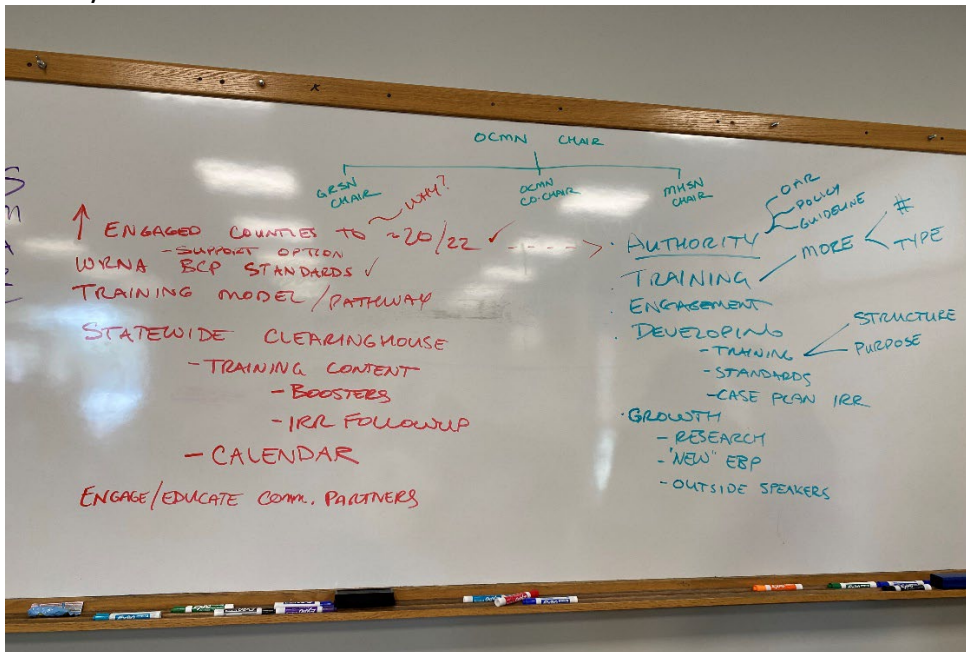 OCMN CHAIR
GRSN CHAIR
OCMN CO-CHAIR
MHSN CHAIR
WHY?
↑ ENGAGED COUNTIES TO ~20/22 ✓
- SUPPORT OPTION
WRNA BCP STANDARDS ✓
TRAINING MODEL/PATHWAY
STATEWIDE CLEARINGHOUSE
- TRAINING CONTENT
- BOOSTERS
- IRR FOLLOWUP
- CALENDAR
ENGAGE/EDUCATE COMM. PARTNERS
OAR
POLICY
GUIDELINE
· AUTHORITY
· TRAINING
MORE
#
TYPE
· ENGAGEMENT
· DEVELOPING
- TRAINING
STRUCTURE
PURPOSE
- STANDARDS
- CASE PLAN IRR
· GROWTH
- RESEARCH
- "NEW" EBP
- OUTSIDE SPEAKERS